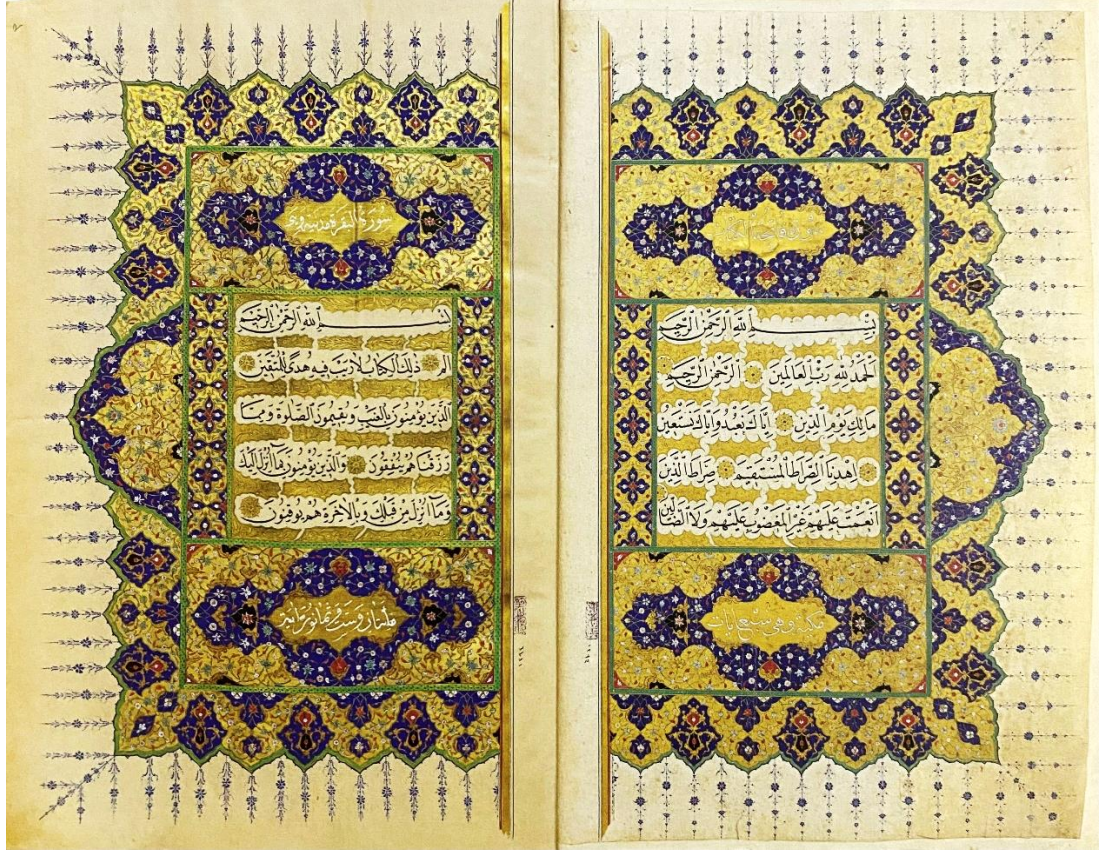 سورة فاتحة الكتاب
بسم الله الرحمن الرحيم
الحمد لله رب العالمين الرحمن الرحيم
مالك يوم الدين اياك نعبد واياك نستعين
اهدنا الصراط المستقيم صراط الذين
انعمت عليهم غير المغضوب عليهم ولا الضالين
مكية وهي سبع ايات
سورة البقرة مدنية وهي
بسم الله الرحمن الرحيم
الم ذلك الكتاب لا ريب فيه هدى للمتقين
الذين يؤمنون بالغيب ويقيمون الصلوة ومما
رزقناهم ينفقون والذين يؤمنون بما انزل اليك
وما انزل من قبلك وبالاخرة هم يوقنون
مائتان وست وثمانون اية